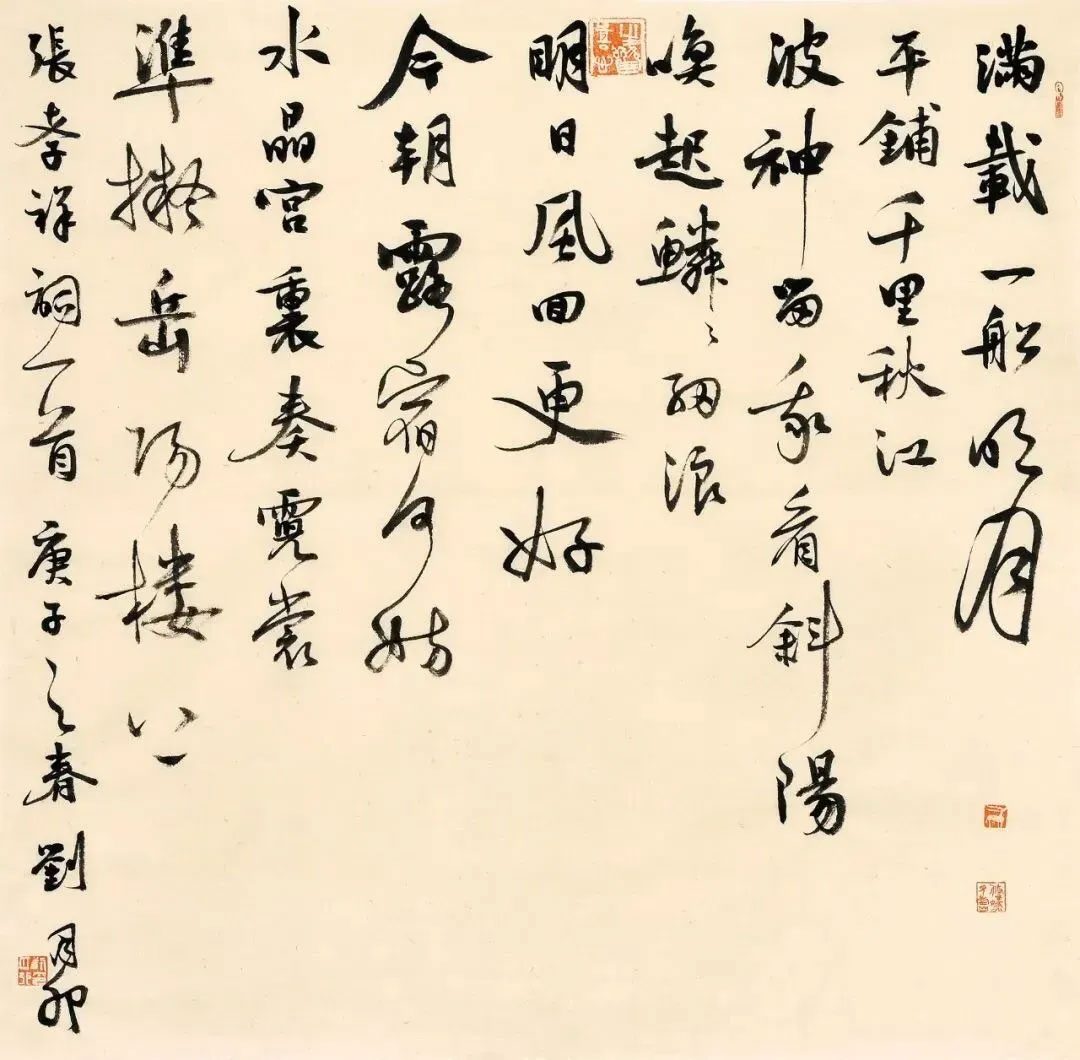 滿載一船明月
平鋪千里秋江
波神留我看斜陽
喚起鱗〻細浪
明日風回更好
今朝露宿何妨
水晶宮裏奏霓裳
準擬岳陽樓上
張孝祥詞一首 庚子之春 劉月卯